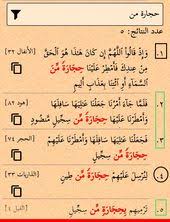 حجارة من
عدد النتائج: ٥
١. وَإِذْ قَالُوا۟ ٱللَّهُمَّ إِن كَانَ هَٰذَا هُوَ ٱلْحَقَّ [الأنفال ٣٢]
مِنْ عِندِكَ فَأَمْطِرْ عَلَيْنَا حِجَارَةً مِّنَ
ٱلسَّمَآءِ أَوِ ٱئْتِنَا بِعَذَابٍ أَلِيمٍ
٢. فَلَمَّا جَآءَ أَمْرُنَا جَعَلْنَا عَٰلِيَهَا سَافِلَهَا [هود ٨٢]
وَأَمْطَرْنَا عَلَيْهَا حِجَارَةً مِّن سِجِّيلٍ مَّنضُودٍ
٣. فَجَعَلْنَا عَٰلِيَهَا سَافِلَهَا وَأَمْطَرْنَا عَلَيْهِمْ [الحجر ٧٤]
حِجَارَةً مِّن سِجِّيلٍ
٤. لِنُرْسِلَ عَلَيْهِمْ حِجَارَةً مِّن طِينٍ [الذاريات ٣٣]
٥. تَرْمِيهِم بِحِجَارَةٍ مِّن سِجِّيلٍ [الفيل ٤]